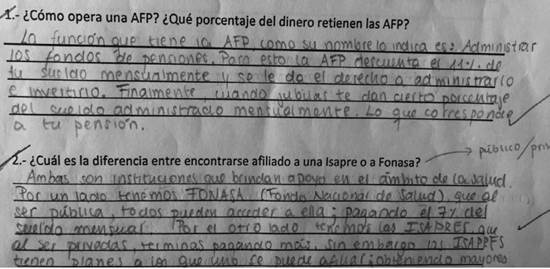 1.- ¿Cómo opera una AFP? ¿Qué porcentaje del dinero retienen las AFP?
La función que tiene la AFP, como su nombre lo indica es: Administrar
los fondos de pensiones. Para esto la AFP descuenta el 11% de
tu sueldo mensualmente y se le da el derecho a administrarlo
e invertirlo. Finalmente, cuando jubilas te dan cierto porcentaje
del sueldo administrado mensualmente. Lo que corresponde
a tu pensión.
2.- ¿Cuál es la diferencia entre encontrarse afiliado a una Isapre o a Fonasa? → público/priv
Ambas son instituciones que brindan apoyo en el ámbito de la salud.
Por un lado tenemos FONASA (Fondo Nacional de Salud), que al
ser pública, todos pueden acceder a ella; pagando el 7% del
sueldo mensual. Por el otro lado tenemos las ISAPRES que
al ser privadas, terminas pagando más. Sin embargo las ISAPRES
tienen planes a los que uno se puede afiliar; obteniendo mayores